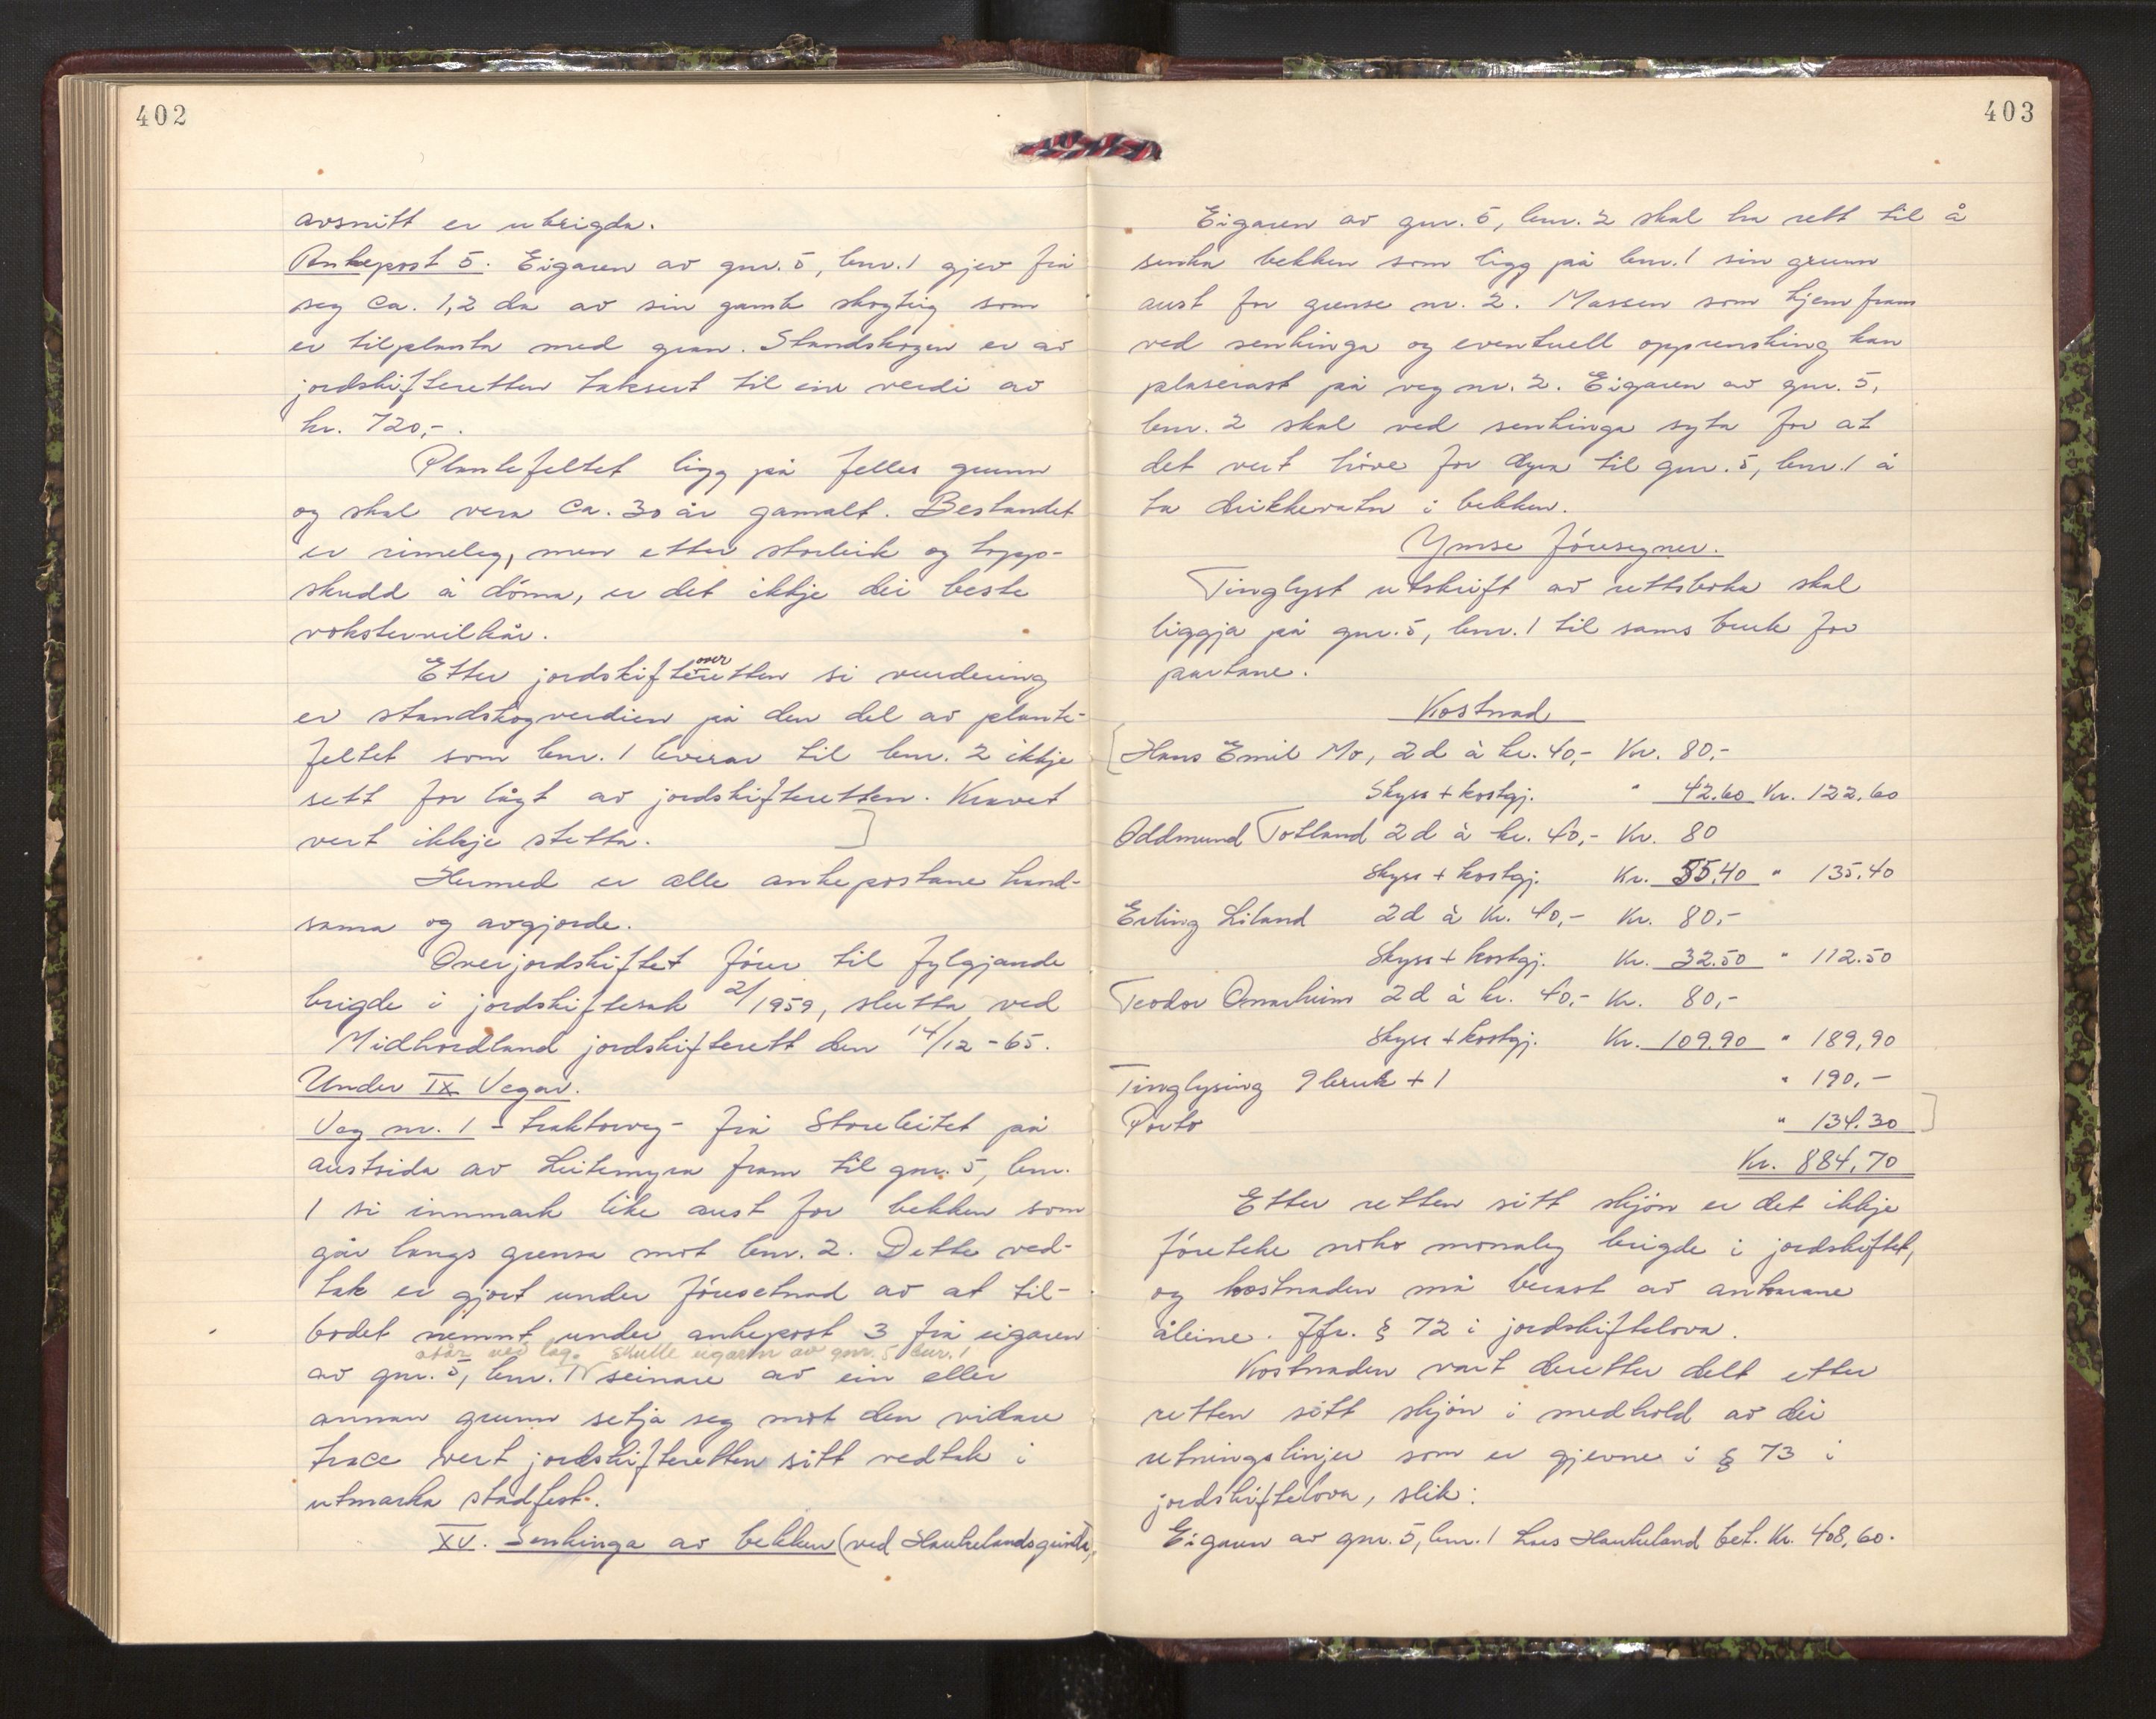 402
avsnitt er ubrigda.
Ankepost 5. Eigaren av gnr. 5, bnr. 1 gjev frå
seg ca. 1,2 da av sin gamle skogteig som
er tilplanta med gran. Standskogen er av
jordskifteretten taksert til ein verdi av
kr. 720,-.
Plantefeltet ligg på felles grunn
og skal vera ca. 30 år gamalt. Bestandet
er rimeleg, men etter storleik og topp-
skudd å döma, er det ikkje dei beste
vokstervilkår.
over
Etter jordskifteretten si vurdering
er standskogverdien på den del av plante-
feltet som bnr. 1 leverar til bnr. 2 ikkje
sett for lågt av jordskifteretten. Kravet
vert ikkje stetta. ]
Hermed er alle ankepostane hand-
sama og avgjorde.
Overjordskiftet förer til fylgjande
brigde i jordskiftesak 2/1959, slutta ved
Midhordland jordskifterett den 14/12-65.
Under IX Vegar.
Veg nr. 1 - traktorveg - frå Storeleitet på
austsida av Leitemyra fram til gnr. 5, bnr.
1 si innmark like aust for bekken som
går langs grensa mot bnr. 2. Dette ved-
tak er gjort under föresetnad av at til-
bodet nemnt under ankepost 3 frå eigaren
står ved lag. Skulle eigaren av gnr. 5 bnr. 1
av gnr. 5, bnr. 1 seinare av ein eller
annan grunn setja seg mot den vidare
trace vert jordskifteretten sitt vedtak i
utmarka stadfest.
XV. Senkinga av bekken (ved Haukelandsgrinda)
403
Eigaren av gnr. 5, bnr. 2 skal ha rett til å
senka bekken som ligg på bnr. 1 sin grunn
aust for grense nr. 2. Massen som kjem fram
ved senkinga og eventuell opprensking kan
plaserast på veg nr. 2. Eigaren av gnr. 5,
bnr. 2 skal ved senkinga syta for at
det vert höve for dyra til gnr. 5, bnr. 1 å
ta drikkevatn i bekken.
Ymse föresegner.
Tinglyst utskrift av rettsboka skal
liggja på gnr. 5, bnr. 1 til sams bruk for
partane.
Kostnad
[Hans Emil Mo, 2 d à kr. 40,- Kr. 80,-
Skyss + kostgj. " 42.60 Kr. 122,60
Oddmund Totland 2 d à kr. 40,- Kr. 80
Skyss + kostgj. Kr. 55.40 " 135.40
Erling Liland 2 d à Kr. 40,- Kr. 80,-
Skyss + kostgj. Kr. 32.50 " 112.50
Teodor Omarheim 2 d à kr. 40,- Kr. 80,-
Skyss + kostgj. Kr. 109.90 " 189,90
Tinglysing 9 bruk + 1 " 190,-
Porto " 134.30 ]
Kr. 884,70
Etter retten sitt skjön er det ikkje
företeke noko monaleg brigde i jordskiftet,
og kostnaden må berast av ankarane
åleine. Jfr. § 72 i jordskiftelova.
Kostnaden vart deretter delt etter
retten sitt skjön i medhold av dei
retningslinjer som er gjevne i § 73 i
jordskiftelova, slik:
Eigaren av gnr. 5, bnr. 1 Lars Haukeland bet. Kr. 408,60.